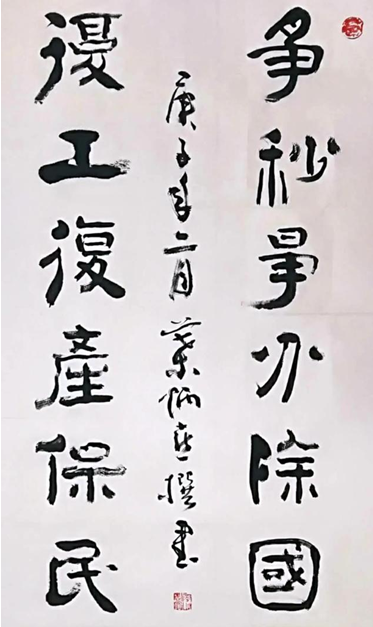 爭秒爭分除國
庚子年二月葉炳喜撰書
復工復產保民